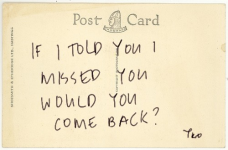 Post Card
IF I TOLD YOU I
MISSED YOU
WOULD YOU
COME BACK?